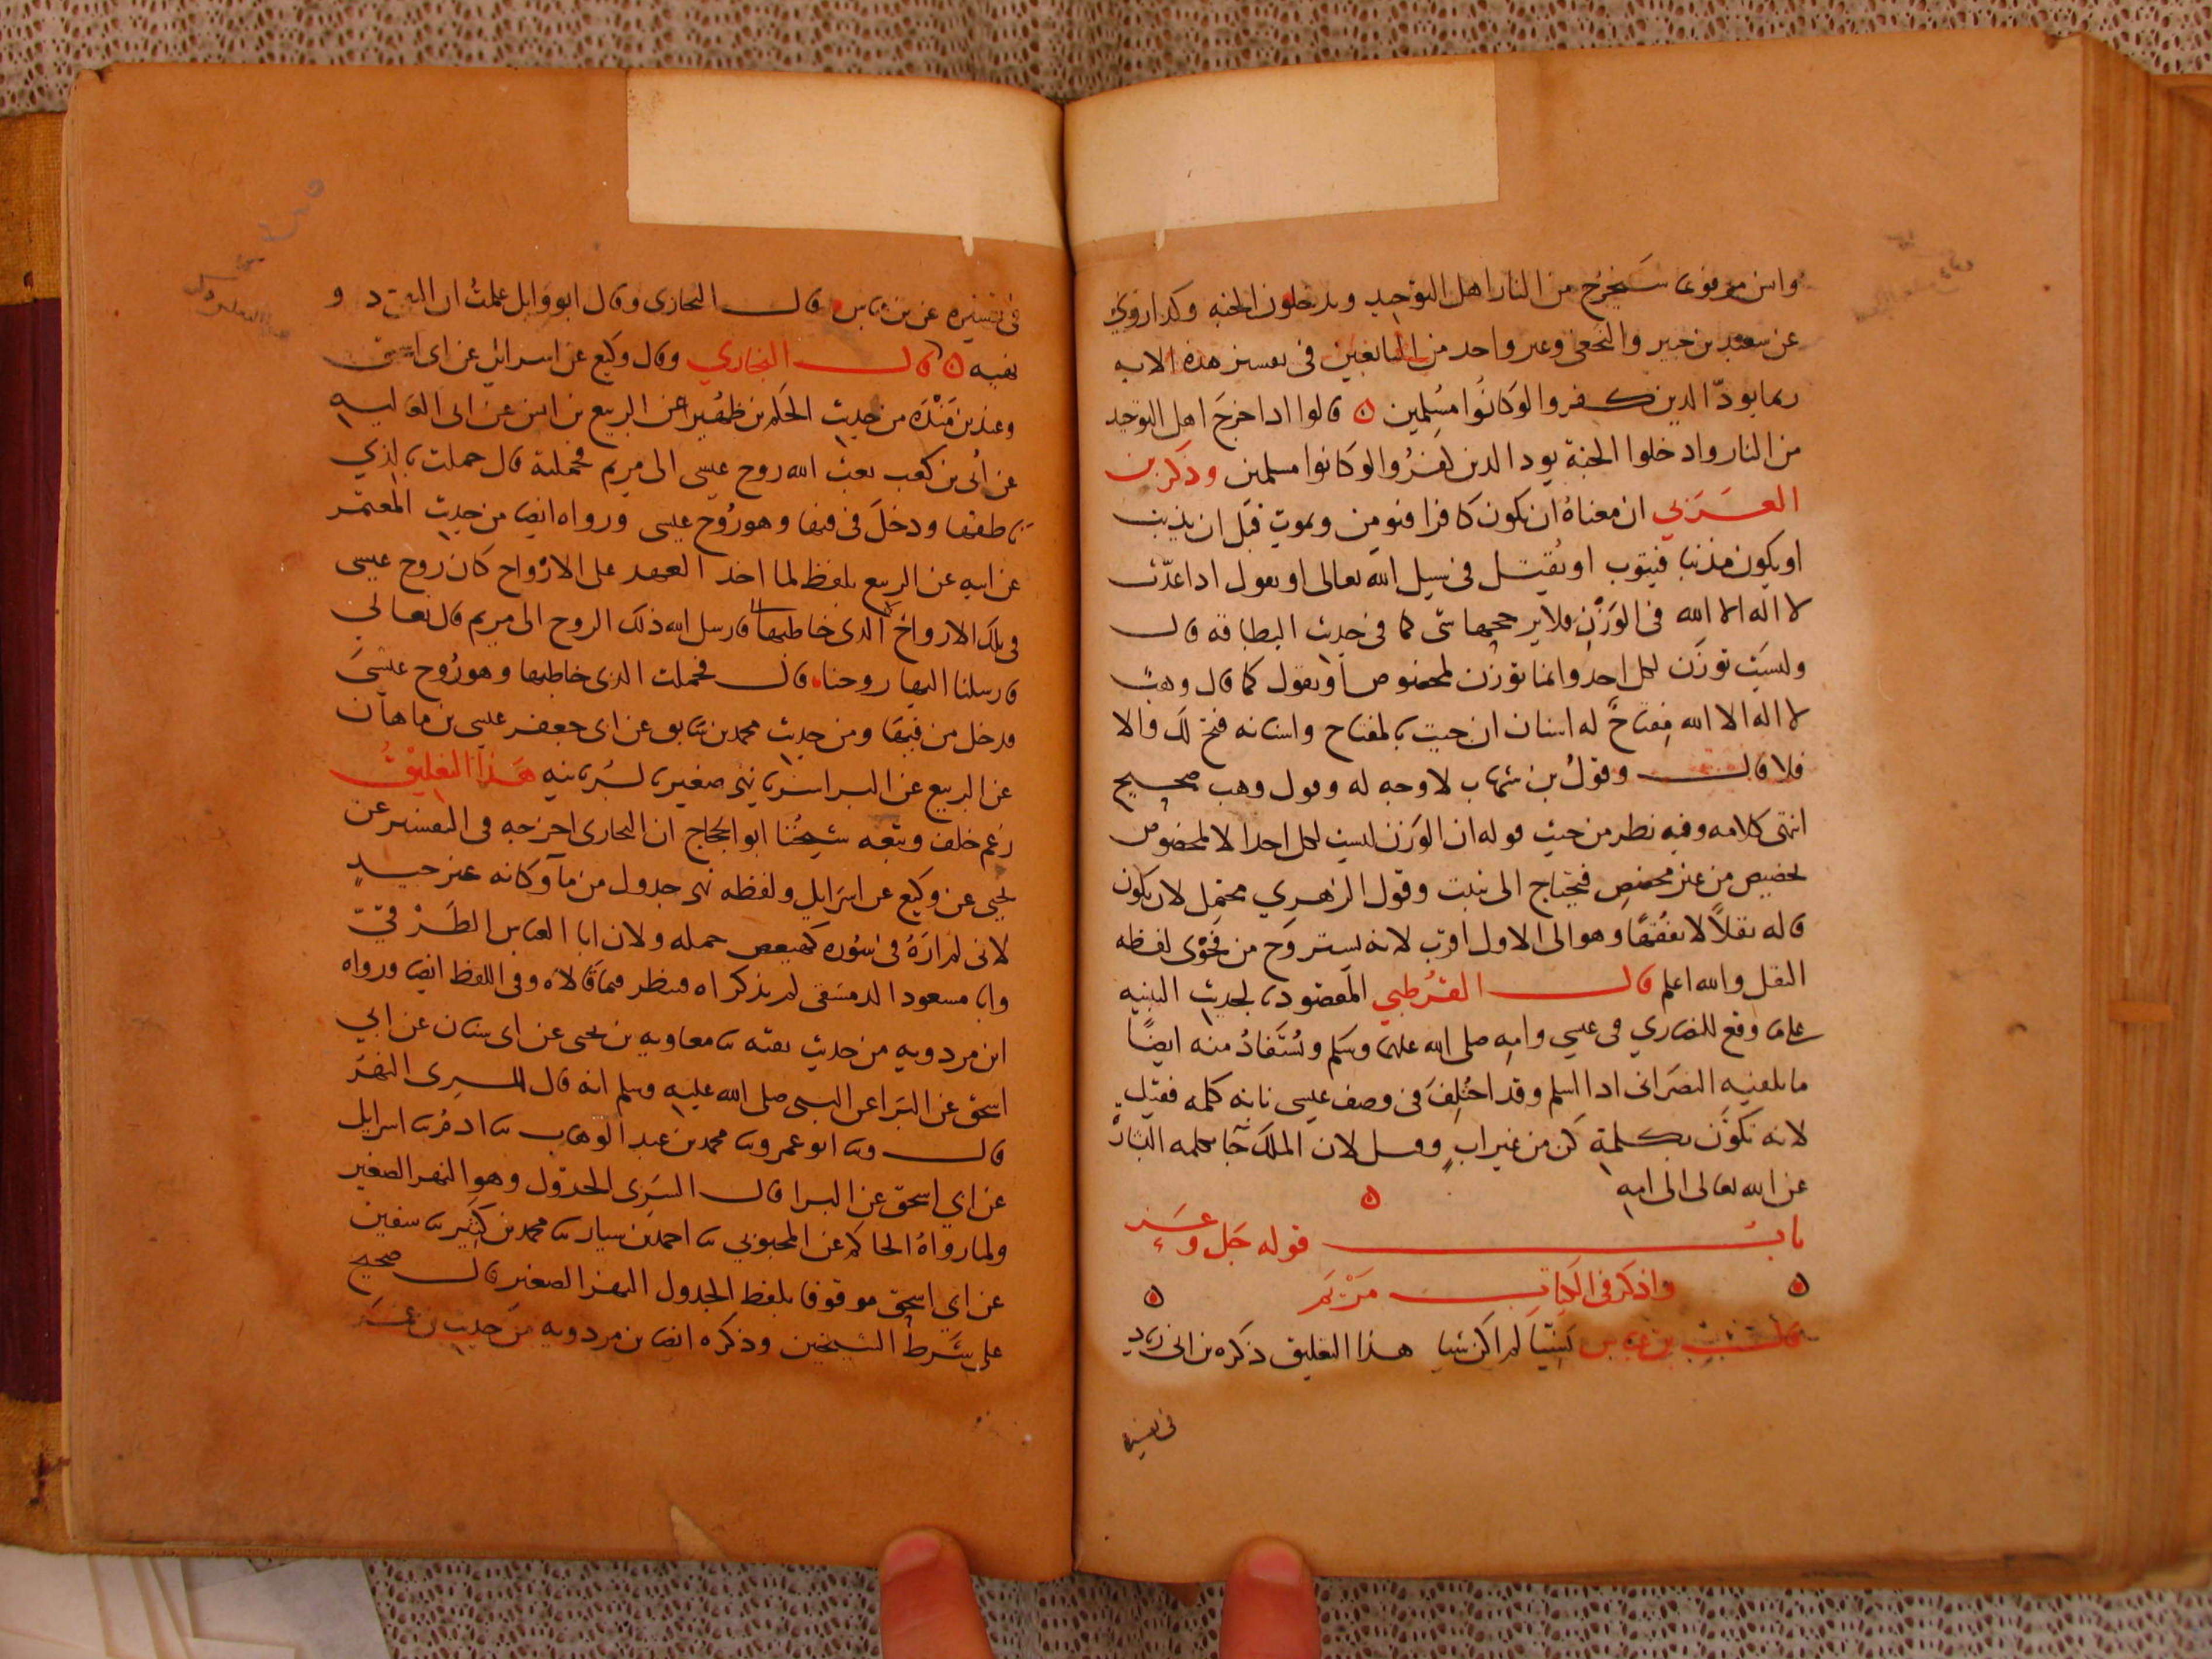 وانس مرفوعا سَيَخرُج من النار اهل التوحيد ويدخلون الجنه وكذا روي
عن سعيد بن جبير والنخعى وغير واحد من التابعين فى تفسير هذه الايه
ربما يودّ الذين كفروا لو كانُوا مسُلِمين ٥ قالوا اذا خرجَ اهل التوحيد
من النار وادخلوا الجنة يود الذين كفرُوا لو كانوا مسلمين وذكر بن
العَرَبي ان معناهُ ان يكون كافرا فيومن ويموت قبل ان يذنب
او يكون مذنبا فيتوب او يُقتل فى سبيل الله تعالى او يعول اذا اعدّت
لا اله الا الله فى الوَزْنِ فلا يرجحها شى كما فى حديث البطاقه قال
وليسَت توزَن لكل احد وانما توزن لمخصوص او يقول كما قال وهب
لا اله الا الله مِفتاحٌ له اسنان ان جيت بالمفتاح واسنانه فتح لك والا
فلا قال وقولُ بن شهاب لا وجه له وقول وهب صحيح
انتهى كلامه وفيه نظر من حيث قوله ان الوَزن ليست لكل احد الا لمخصوص
تخصيص من غير مخصِص فيحتاج الى تثبت وقول الزهري محتمِل لان يكون
قاله نقلًا لا تفُقهًا وهو الى الاول اقرب لانه يستروَح من فَحْوى لفظه
النقل والله اعلم قال القرُطبي المقصود بحديث البنيه
على ما وقع للنصاري فى عيسي وامِه صلى الله عليهما وسَلم ويُسْتَفادُ منه ايضًا
ما يلقنه النصَرانى اذا اسلم وقد اختُلِفَ فى وصف عيسى بانه كلمه فقيل
لانه تكوَّن بكلمة كُن من غير ابٍ وقيل لان الملكَ جآ بكلمه البشارة
عن الله تعالى الى امِه
٥
بابُ قوله جَل وعَز
٥ واذكر فى الكتاب مَرْيَم ٥
قال بن عباس نَسْيًا لم اكن شيا هذا التعليق ذكره بن ابى زياد
فى تفسيره
فى تفسيره عن بن عباس قال البخارى وقال ابو وايل علمتْ ان التقى ذو
نهيه ٥ قال البخاري وقال وكيع عن اسرائل عن ابى اسحق
وعند بن مَنْدَه من حديث الحكم بن ظهُير عن الربيع بن انس عن ابى العاليه
عن اُبى بن كعب بعث الله روح عيسى الى مريم فحملته قال حملت بالذي
خاطبها ودخلَ فى فيها وهو رُوح عيسى ورواه ايضا من حديث المعتمر
عن ابيه عن الربيع بلفظ لما اخذ العهد على الارْواح كان روح عيسى
فى تلك الارواحْ الذى خاطبها فارسل الله ذلك الروح الى مريم قال تعالي
فارسلنا اليها روحنا قال فحملت الذى خاطبها وهو رُوح عيسَى
فدخل من فيها ومن حديث محمد بن سَابق عن ابى جعفر عيسى بن ماهان
عن الربيع عن البرا سَرِيا نهر صغير بالسُريانيه هَذا التعليقُ
زعم خلف وتبعه شيخُنا ابو الحجاج ان البخارى اخرجه فى التفسير عن
يحيى عن وكيع عن اسرَايل ولفظه نهر جدول من مآ وكانه غير جيدٍ
لانى لم ارَهُ فى سُورة كهيعص جمله ولان ابا العباس الطَرْقيّ
وابا مسعود الدمشقى لم يذكراه فينظر فيما قالاه وفى اللفظ ايضا ورواه
ابن مردويه من حديث بقيه ثنا معاويه بن يحيى عن ابى سنان عن ابي
اسحق عن البَرا عن النبى صلى الله عليه وسلم انه قال السرى النهَر
قال وثنا ابو عمرو ثنا محمد بن عبد الوهاب ثنا ادمُ ثنا اسرايل
عن ابي اسحق عن البرا قال السَرِى الجدوَل وهو النهر الصغير
ولما رواهُ الحاكم عن المحبوبي ثنا احمد بن سيار ثنا محمد بن كثير ثنا سفين
عن ابى اسحق موقوفا بلفظ الجدول النهر الصغير قال صحيح
على شرَط الشيخين وذكره ايضا بن مردويه من حديث بن عمَر